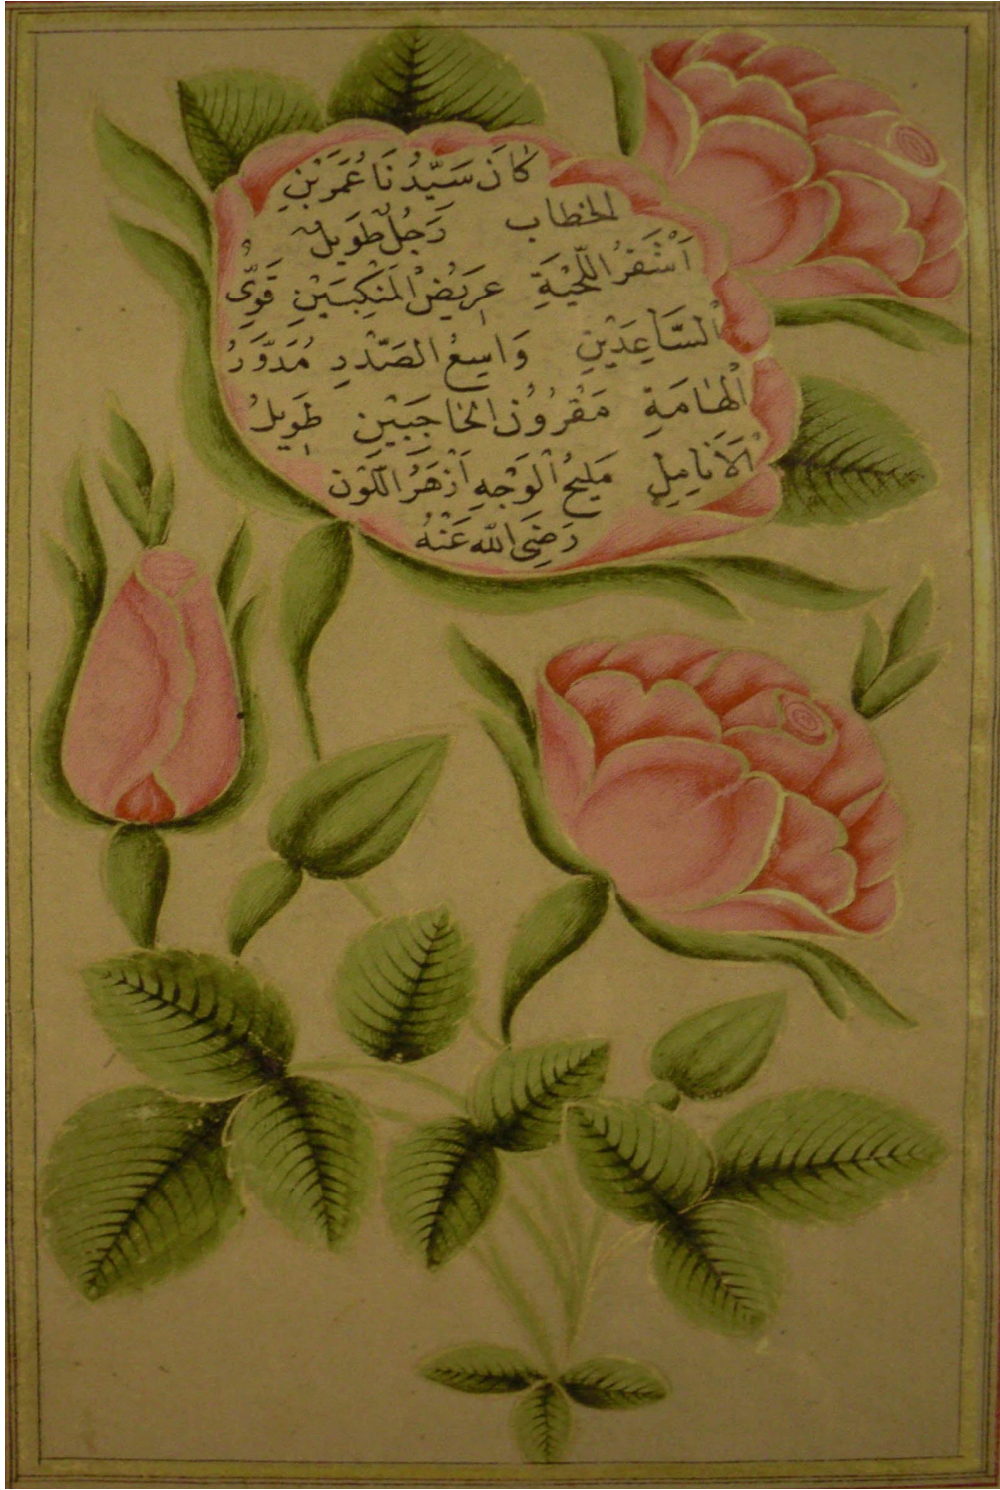 كَانَ سَيِّدُنَا عُمَرَ بْنِ
الخطاب رَجُلٌ طَوَيلٌ
اَشْقَرُ اللِّحْيَةِ عِرَيضُ الْمَنْكِبَيْنِ قَوِّىُ
اْلسَّاعِدَيْنِ وَاسِعُ الصَّدْرِ مُدَوَّرُ
اْلهَامَةِ مَقْرُوُنْ الحَاجِبَيْنِ طَوِيلُ
اْلاَنَامِلِ مَلِيحُ اْلوَجْهِ اَزْهَرُ اللَّوْن
رَضِىَ اللّه عَنْهُ